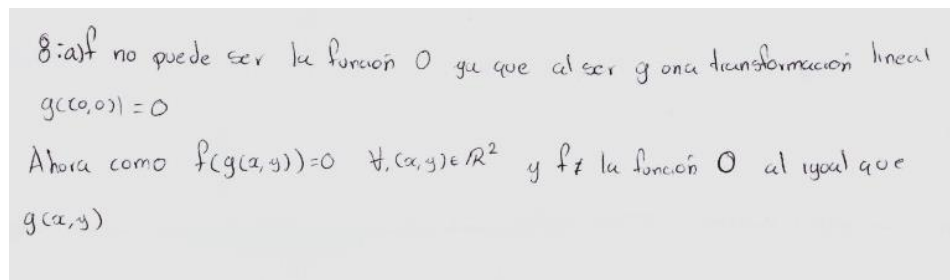 8:a)f no puede ser la función 0 ya que al ser g una transformación lineal
g((0,0)) = 0
Ahora como f(g(x,y))=0 ∀, (x,y)∈ℝ² y f≠ la función 0 al igual que
g(x,y)